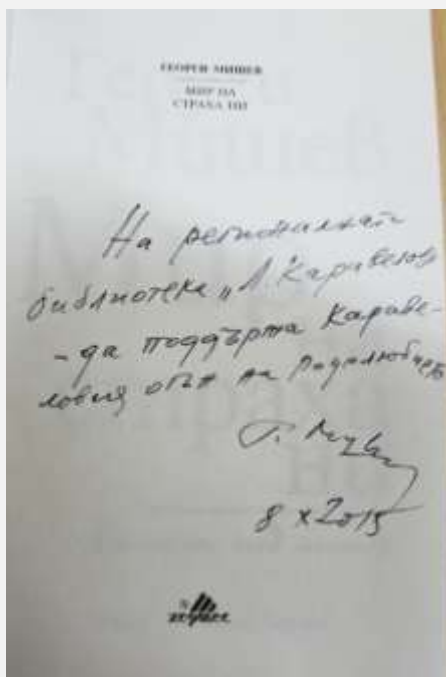 ГЕОРГИ МИШЕВ
МИР НА
СТРАХА НИ
На регионалната
библиотека „Л. Каравелов
- да поддържа Караве-
ловия огън на родолюбието
Г. Мишев
8 X 2015